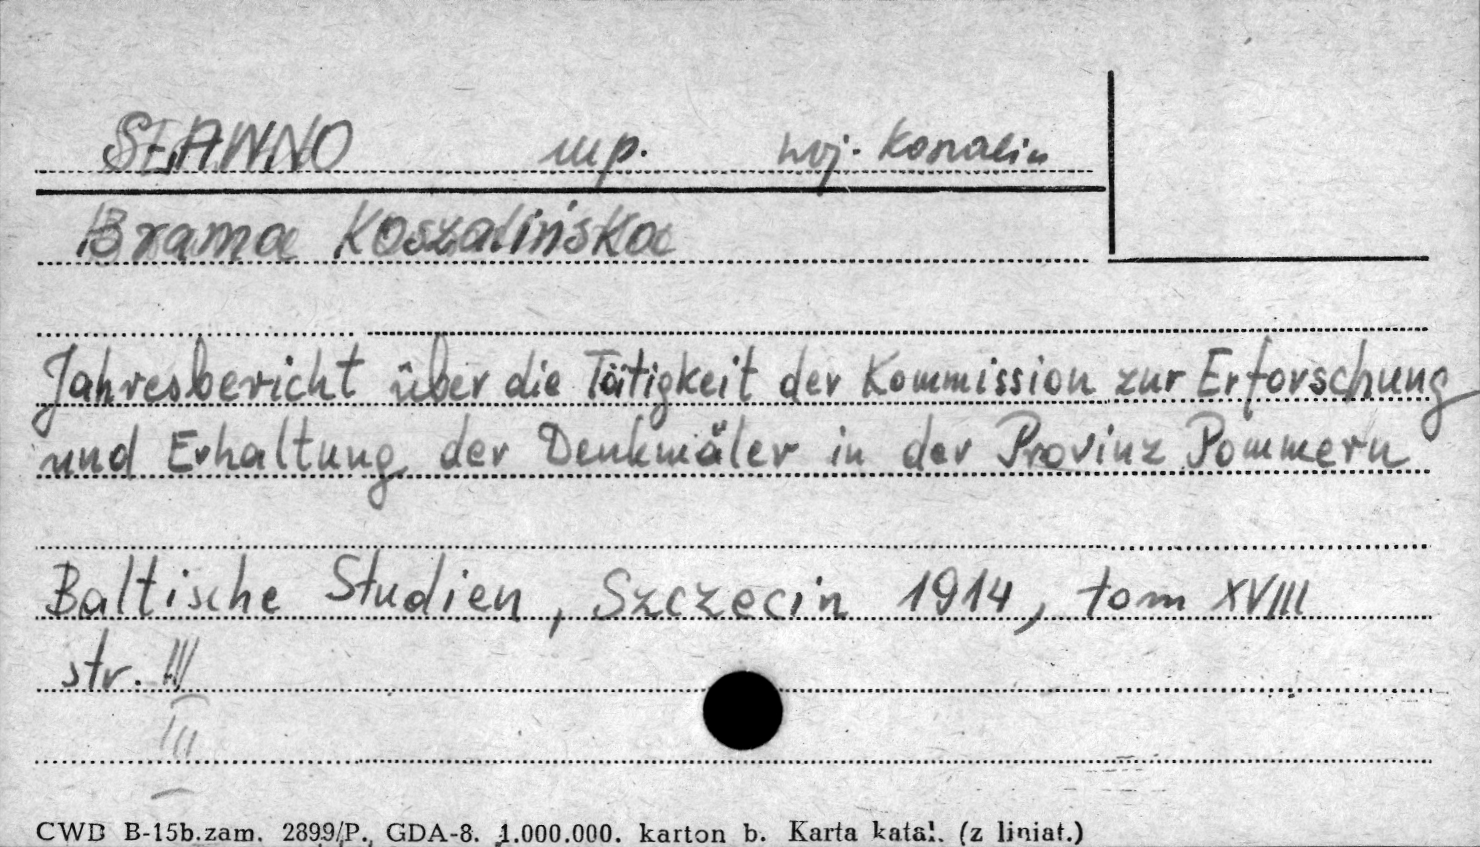 SŁAWNO mp. woj. Koszalin
Brama Koszalińska
Jahresbericht über die Tätigkeit der Kommission zur Erforschung
und Erhaltung der Denkmäler in der Provinz Pommern
Baltische Studien, Szczecin 1914, tom XVIII
str. III
III
CWD B-15b.zam. 2899/P. GDA-8. 1.000.000. karton b. Karta katal. (z liniat.)